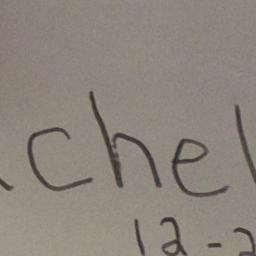 chel
12-2